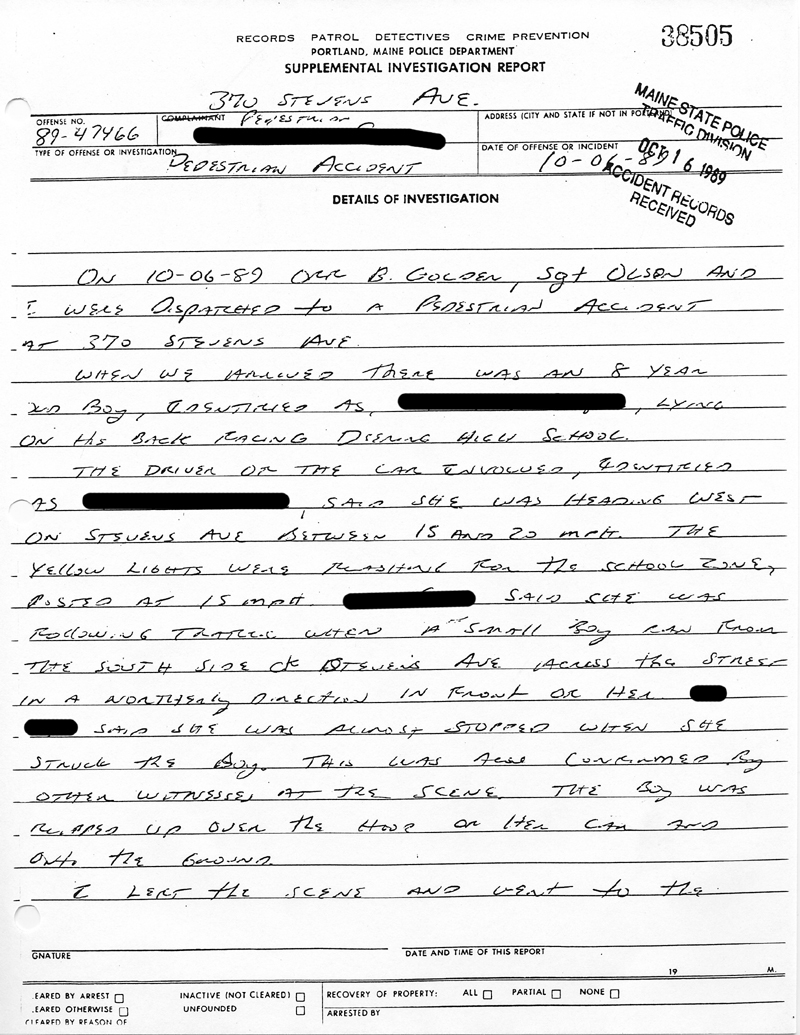 RECORDS PATROL DETECTIVES CRIME PREVENTION
38505
PORTLAND, MAINE POLICE DEPARTMENT
SUPPLEMENTAL INVESTIGATION REPORT
370 STEVENS AVE.
OFFENSE NO.
89-47466
COMPLAINANT PEDESTRIAN
ADDRESS (CITY AND STATE IF NOT IN
MAINE STATE POLICE
TRAFFIC DIVISION
OCT 16 1989
ACCIDENT RECORDS
RECEIVED
TYPE OF OFFENSE OR INVESTIGATION
PEDESTRIAN ACCIDENT
DATE OF OFFENSE OR INCIDENT
10-06-89
DETAILS OF INVESTIGATION
ON 10-06-89 OFF B. GOLDEN, Sgt OLSON AND
I WERE DISPATCHED to A PEDESTRIAN ACCIDENT
AT 370 STEVENS AVE.
WHEN WE ARRIVED THERE WAS AN 8 YEAR
OLD BOY, IDENTIFIED AS, , LYING
ON HIS BACK FACING DEERING HIGH SCHOOL.
THE DRIVER OF THE CAR INVOLVED, IDENTIFIED
AS , SAID SHE WAS HEADING WEST
ON STEVENS AVE BETWEEN 15 AND 20 MPH. THE
YELLOW LIGHTS WERE FLASHING FOR the SCHOOL ZONE,
POSTED AT 15 MPH. SAID SHE WAS
FOLLOWING TRAFFIC WHEN A SMALL BOY RAN FROM
THE SOUTH SIDE OF STEVENS AVE ACROSS the STREET
IN A NORTHERLY DIRECTION IN FRONT OF HER.
SAID SHE WAS ALMOST STOPPED WHEN SHE
STRUCK the BOY. THIS WAS ALSO CONFIRMED By
OTHER WITNESSES AT the SCENE. THE BOY WAS
FLIPPED UP OVER the HOOD OF HER CAR AND
ONTO the GROUND.
I LEFT the SCENE AND WENT to the
GNATURE
DATE AND TIME OF THIS REPORT
19 M.
LEARED BY ARREST
INACTIVE (NOT CLEARED)
RECOVERY OF PROPERTY: ALL PARTIAL NONE
LEARED OTHERWISE
UNFOUNDED
ARRESTED BY
CLEARED BY REASON OF